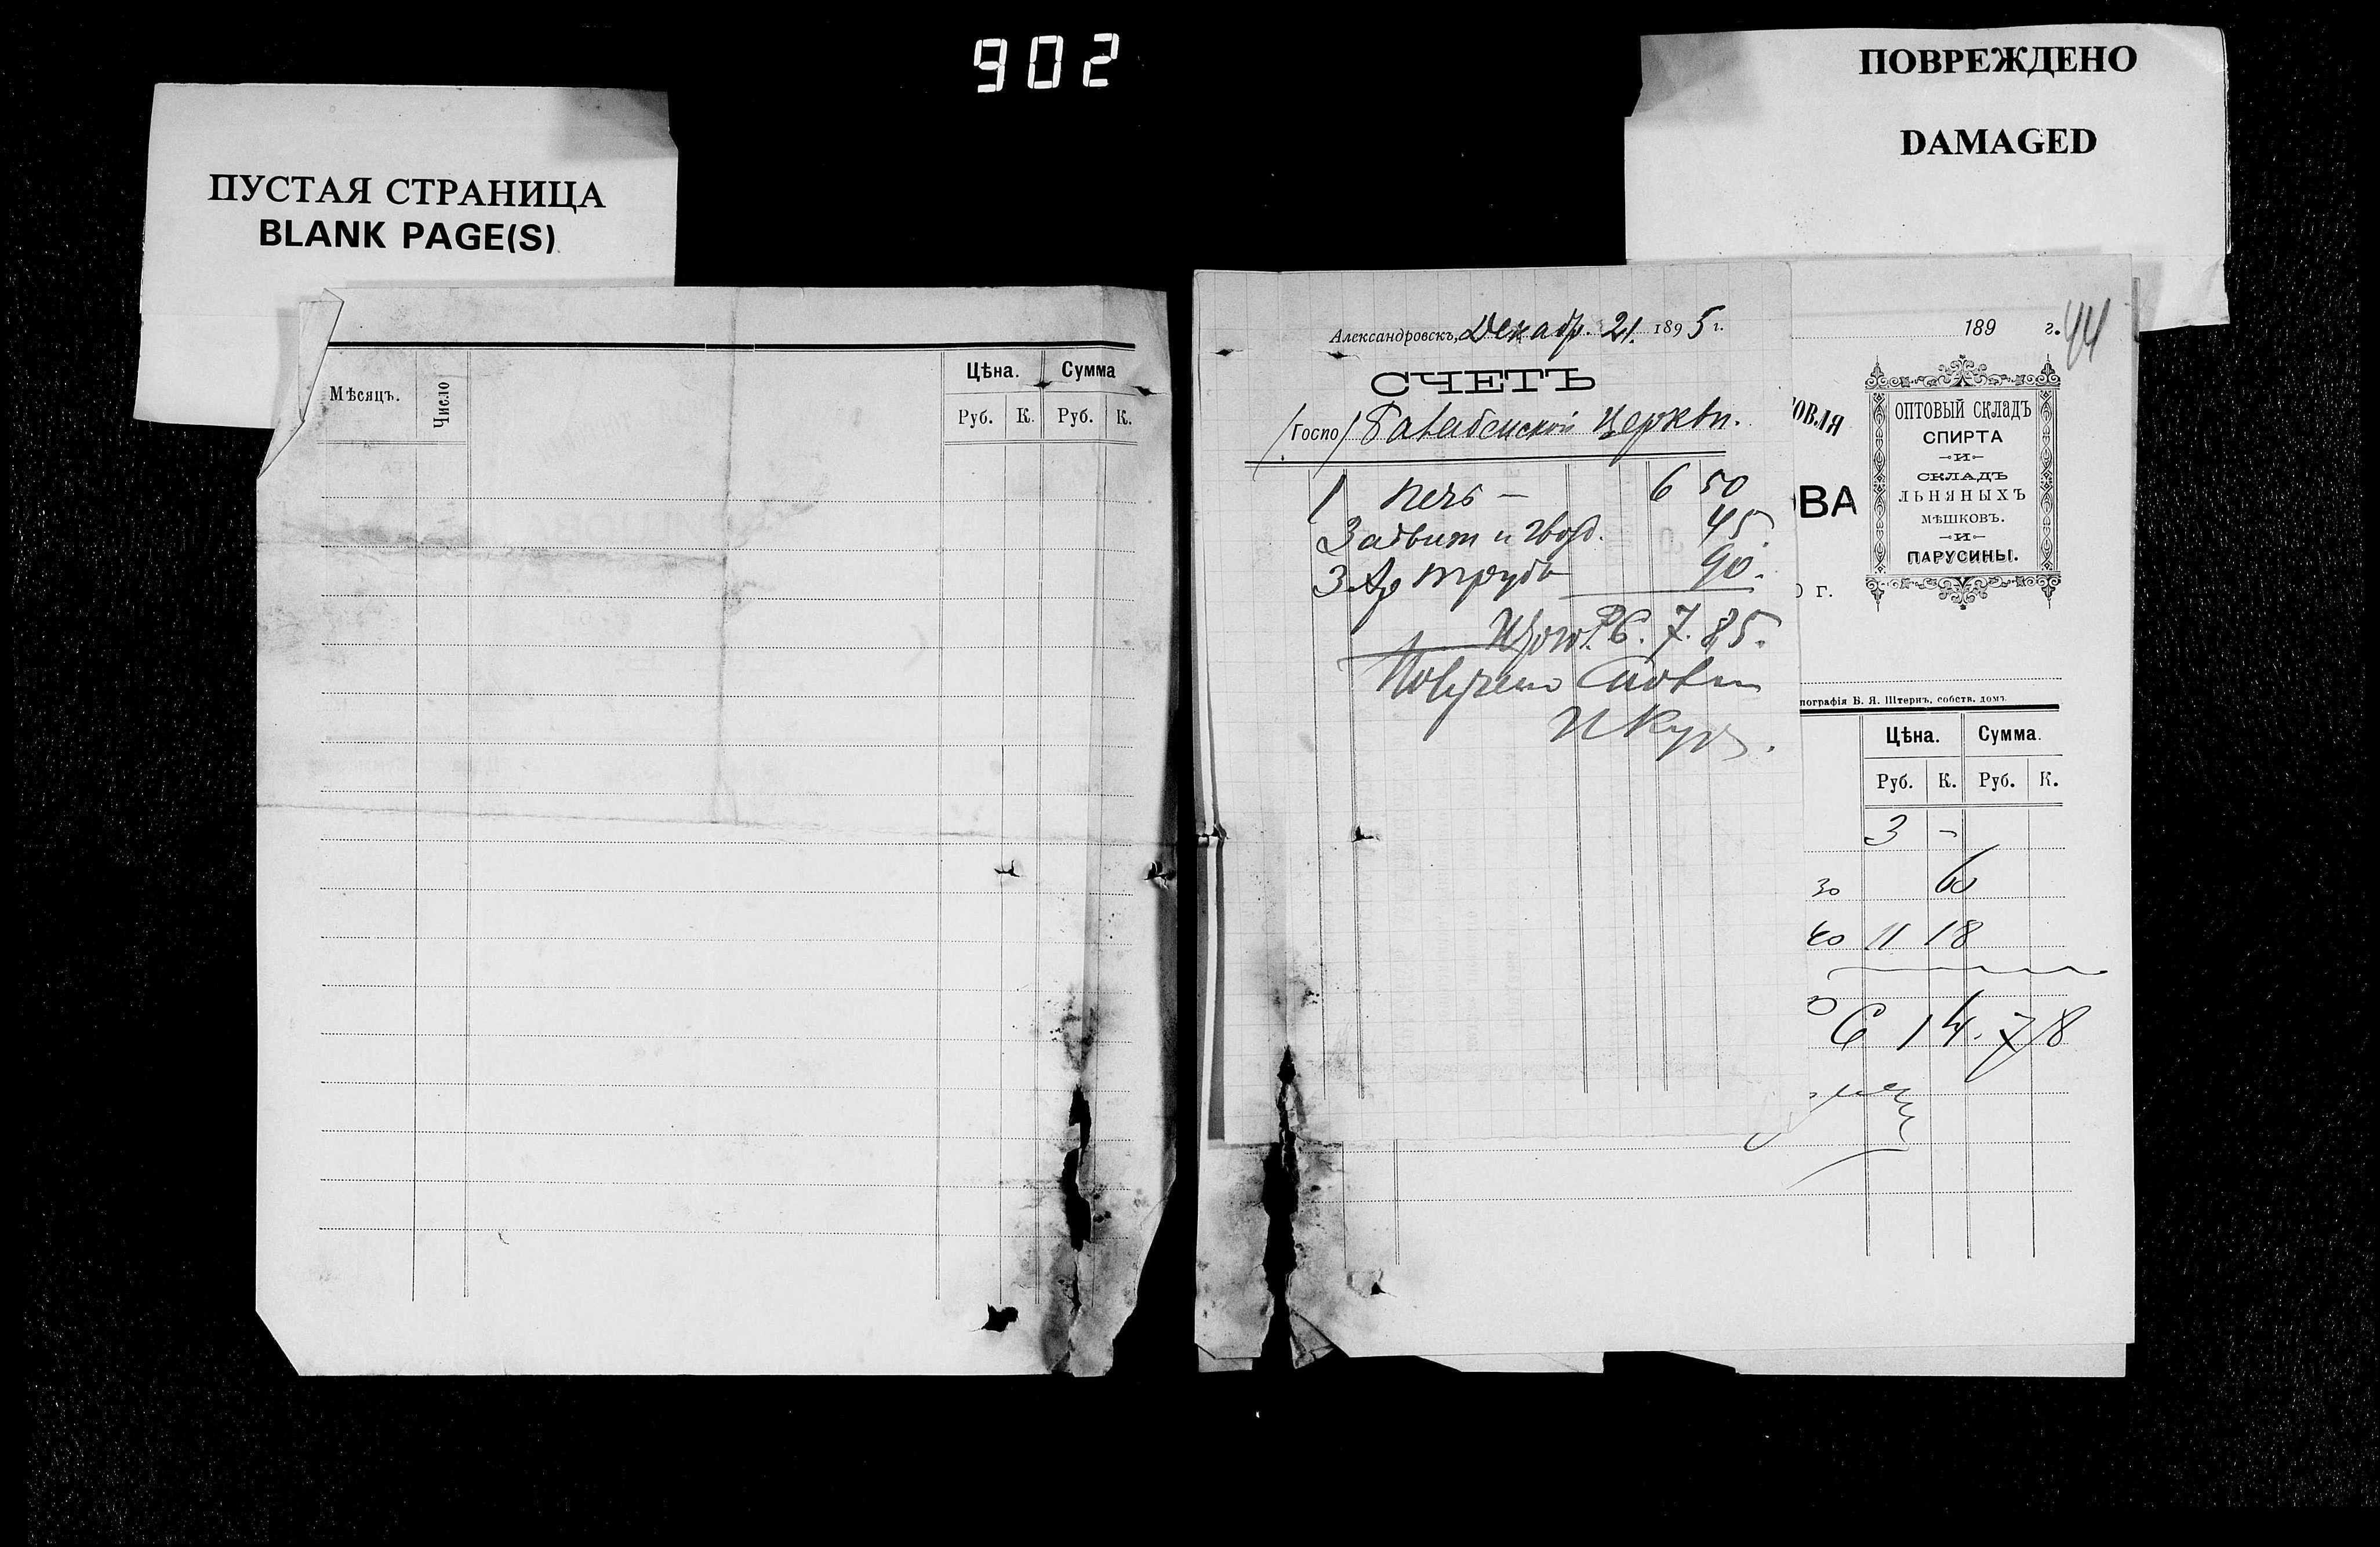 902
ПУСТАЯ СТРАНИЦА
BLANK PAGE(S)
ПОВРЕЖДЕНО
DAMAGED
Мѣсяцъ.
Число
Цѣна.
Сумма
Руб.
К.
Руб.
К.
Александровскъ, Декабр. 21. 1895 г.
СЧЕТЪ
(Госпо) Церкви.
1 печь — 6 50
Задвиж и гвозд. 45.
3 Ар трубъ 90.
Итого Р С. 7. 85.
Получено
189 г.
44
ОВЛЯ
ОВА
ОПТОВЫЙ СКЛАДЪ
СПИРТА
-И-
СКЛАДЪ
ЛЬНЯНЫХЪ
МѢШКОВЪ.
-И-
ПАРУСИНЫ.
0 г.
пографія Б. Я. Штернъ, собств. домъ.
Цѣна.
Сумма.
Руб.
К.
Руб.
К.
3 -
30 60
40 11 18
С 14. 78